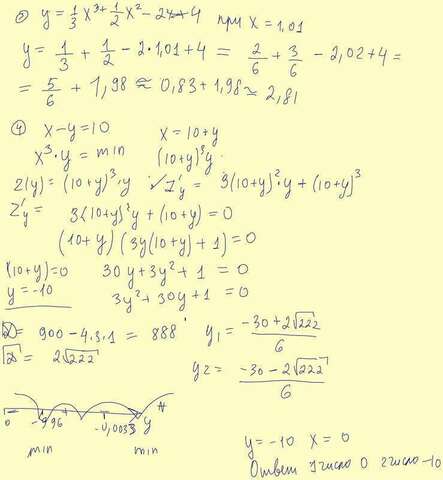 ③ y = 1/3 x³ + 1/2 x² - 2x + 4 при x = 1,01
y = 1/3 + 1/2 - 2·1,01 + 4 = 2/6 + 3/6 - 2,02 + 4 =
= 5/6 + 1,98 ≈ 0,83 + 1,98 ≈ 2,81
④ x - y = 10 x = 10 + y
x³·y = min (10+y)³y
z(y) = (10+y)³·y ✓ z'y = 3(10+y)²·y + (10+y)³
z'y = 3(10+y)²y + (10+y) = 0
(10+y)(3y(10+y)+1) = 0
(10+y) = 0 30y + 3y² + 1 = 0
y = -10 3y² + 30y + 1 = 0
D = 900 - 4·3·1 = 888 y₁ = (-30 + 2√222)/6
√D = 2√222 y₂ = (-30 - 2√222)/6
0 -9,96 -0,0033 y
min min
y = -10 x = 0
Ответ 1 число 0 2 число -10